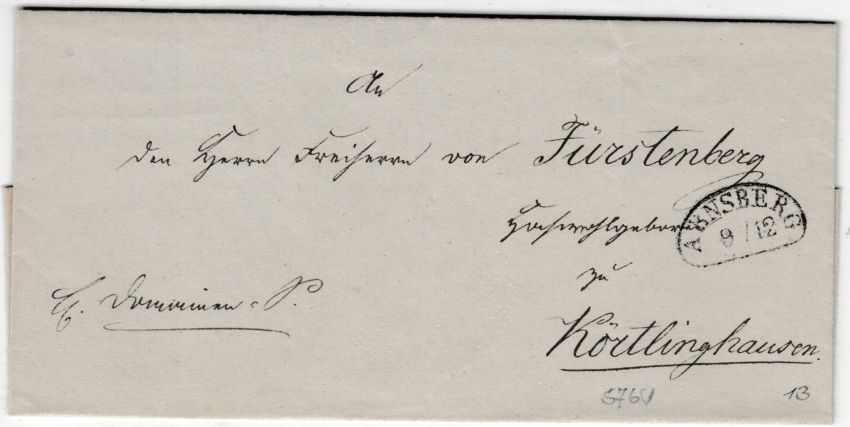 An
den Herrn Freiherrn von Fürstenberg
Hochwohlgeboren
zu
Körtlinghausen.
Domainen-S.
ARNSBERG
9/12
576V
13